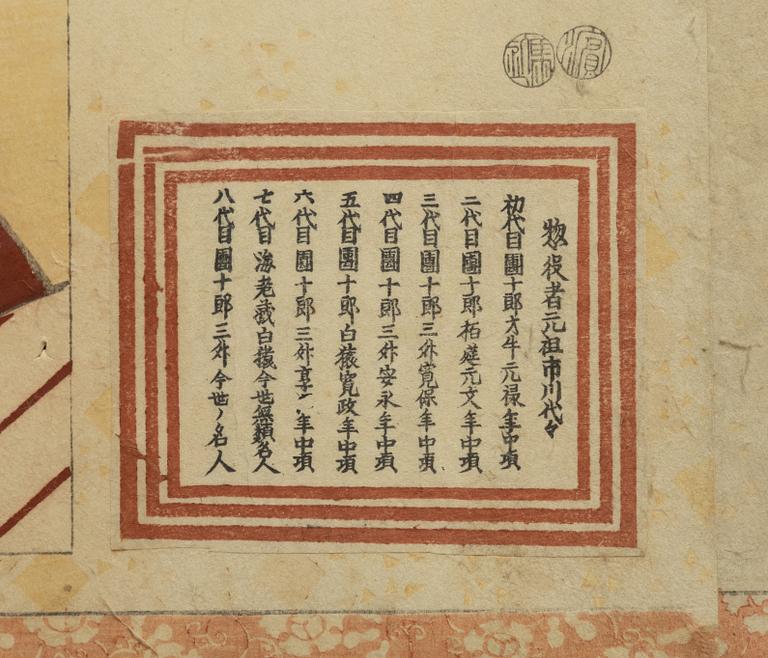 惣役者元祖市川代々
初代目團十郎才牛元禄年中頃
二代目團十郎栢莚元文年中頃
三代目團十郎三舛寛保年中頃
四代目團十郎三舛安永年中頃
五代目團十郎白猿寛政年中頃
六代目團十郎三舛享
年中頃
七代目海老蔵白猿今世無類名人
八代目團十郎三舛今世ノ名人
濱
馬